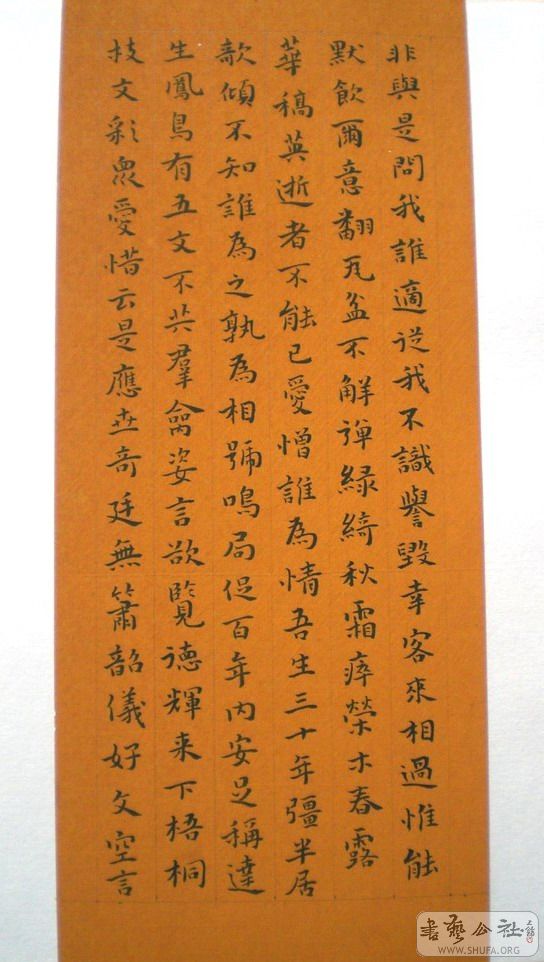 非與是問我誰適從我不識譽毀幸客來相過惟能
默飲爾意翻瓦盆不解彈緑綺秋霜瘁榮木春露
華稿英逝者不能已愛憎誰為情吾生三十年彊半居
欹傾不知誰為之孰為相號鳴局促百年內安足稱達
生鳳鳥有五文不共羣禽姿言欲覽德輝来下梧桐
枝文彩衆愛惜云是應世奇廷無簫韶儀好文空言
書藝公社
WWW.SHUFA.ORG